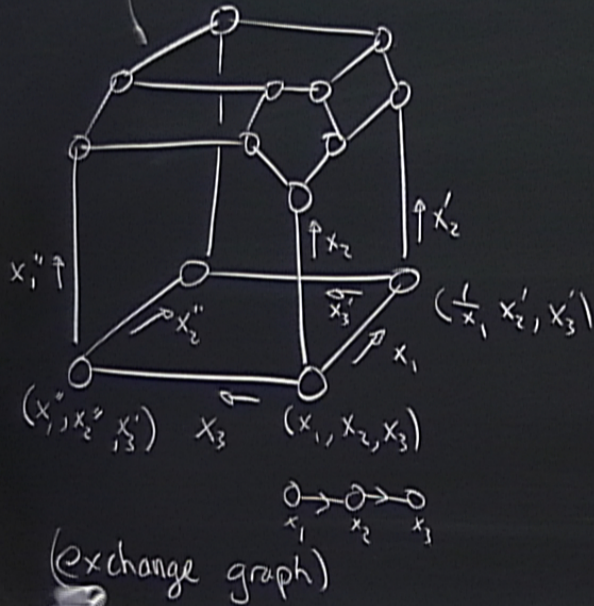 x₁'' ↑
↑ x₂
↑ x₂'
x₂''
x₃'
(1/x₁ x₂', x₃')
x₁
(x₁'', x₂'', x₃') x₃ (x₁, x₂, x₃)
x₁ x₂ x₃
(exchange graph)